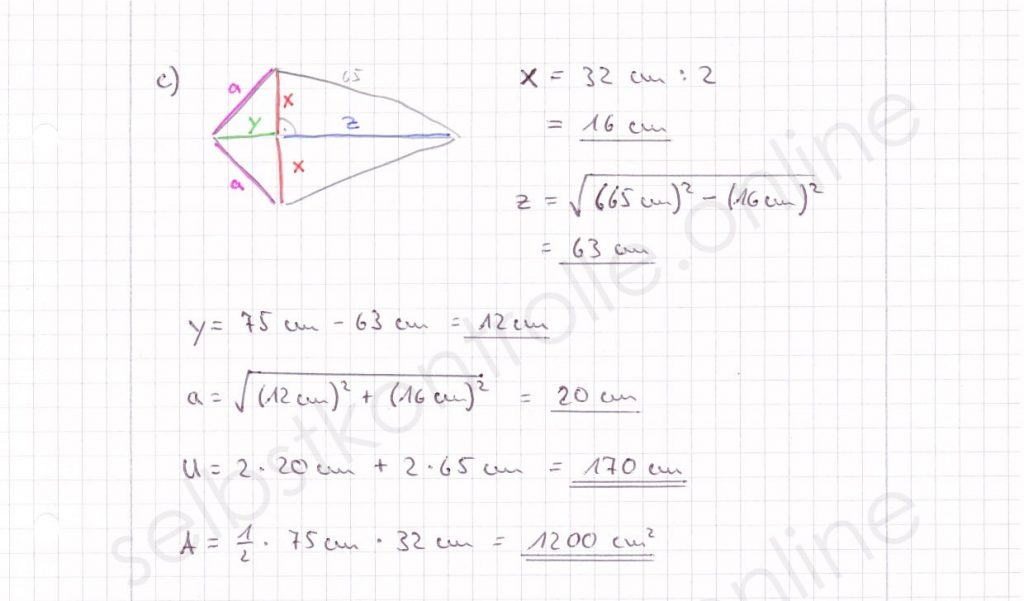 c)
a
65
x
y
z
x
a
x = 32 cm : 2
= 16 cm
z = √(665 cm)² − (16 cm)²
= 63 cm
y = 75 cm − 63 cm = 12 cm
a = √(12 cm)² + (16 cm)² = 20 cm
U = 2 · 20 cm + 2 · 65 cm = 170 cm
A = 1/2 · 75 cm · 32 cm = 1200 cm²
selbstkontrolle.online
online